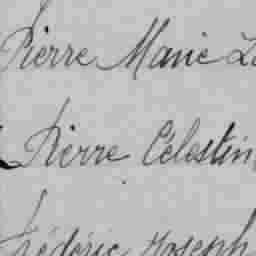 Pierre Marie
Pierre Célestin
Frédéric Joseph